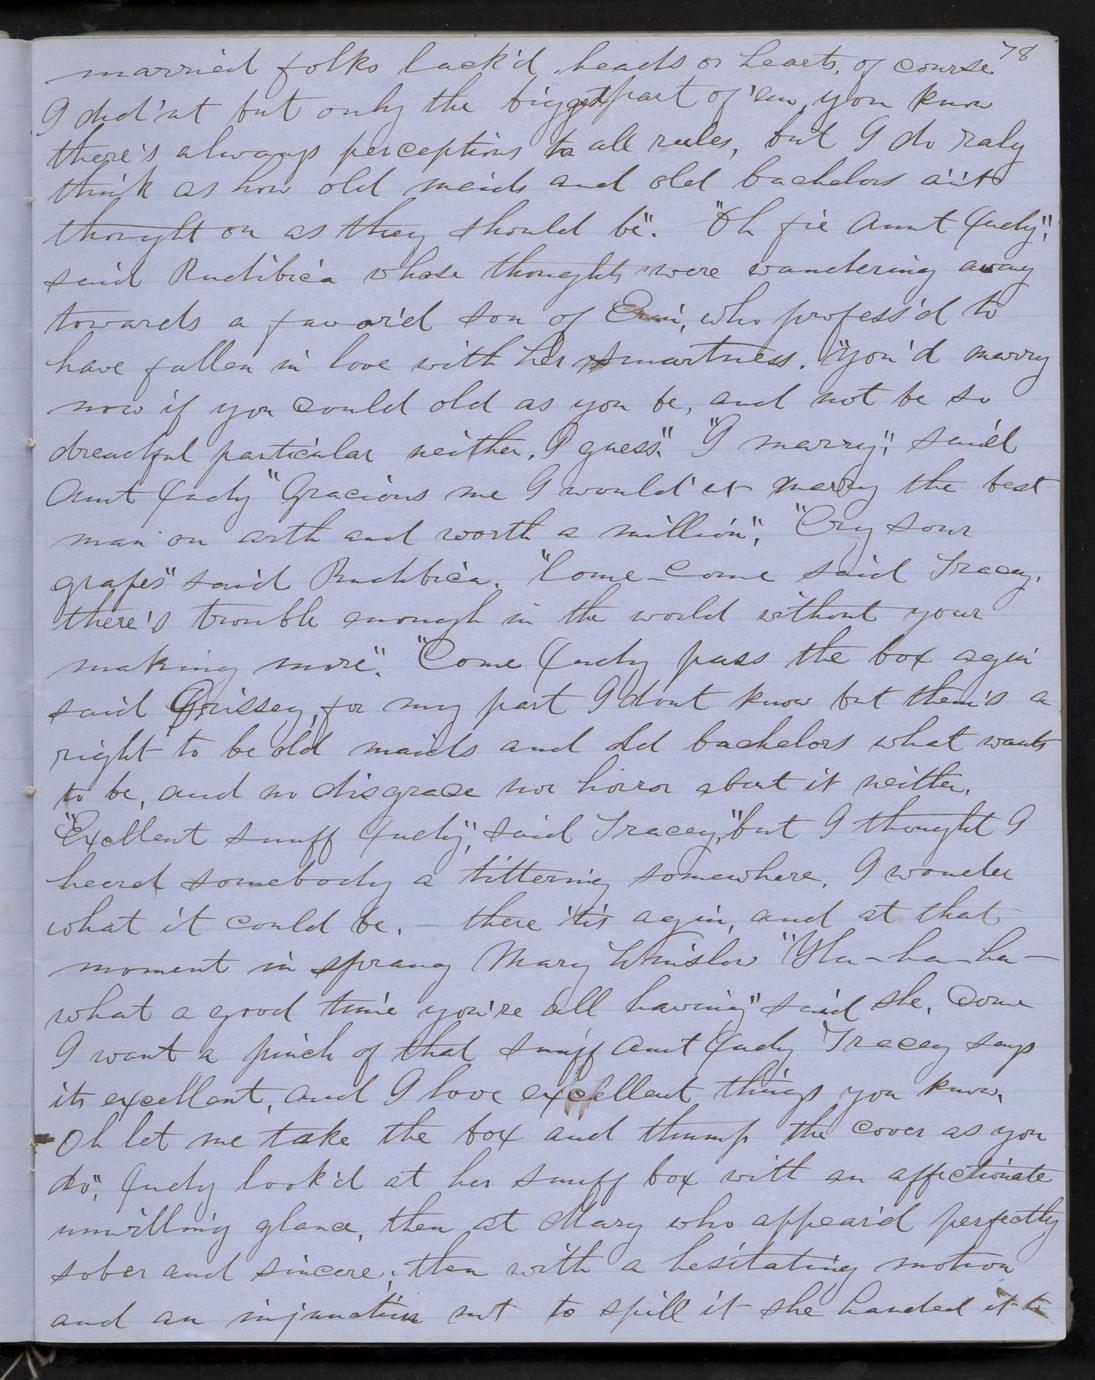 78
married folks lack'd heads or hearts, of course
I did'nt but only the biggest part of 'em, you know
there's always perceptions to all rules, but I do raly
think as how old maids and old bachelors ain't
thought on as they should be". "Oh fie Aunt Judy",
said Rudibica whose thoughts were wandering away
towards a favor'd son of Erin, who profess'd to
have fallen in love with her smartness. "you'd marry
now if you could old as you be, and not be so
dreadful particular neither, I guess". "I marry", said
Aunt Judy "Gracious me I would'nt marry the best
man on arth and worth a million", "Cry sour
grapes" said Rudibica. "Come – come said Tracey,
there's trouble enough in the world without your
making more". "Come Judy pass the box agin
said Grissey, for my part I dont know but them's a
right to be old maids and old bachelors what wants
to be, and no disgrace nor horror about it neither.
"Excellent snuff Judy", said Tracey, "but I thought I
heerd somebody a tittering somewhere, I wonder
what it could be. – there 'tis agin, and at that
moment in sprang Mary Winslow "Ha – ha – ha –
what a good time you're all having" said she. Come
I want a pinch of that snuff Aunt Judy Tracey says
its excellent, and I love excellent things you know,
Oh let me take the box and thump the cover as you
do", Judy look'd at her snuff box with an affectionate
unwilling glance, then at Mary who appear'd perfectly
sober and sincere; then with a hesitating motion
and an injunction not to spill it she handed it to